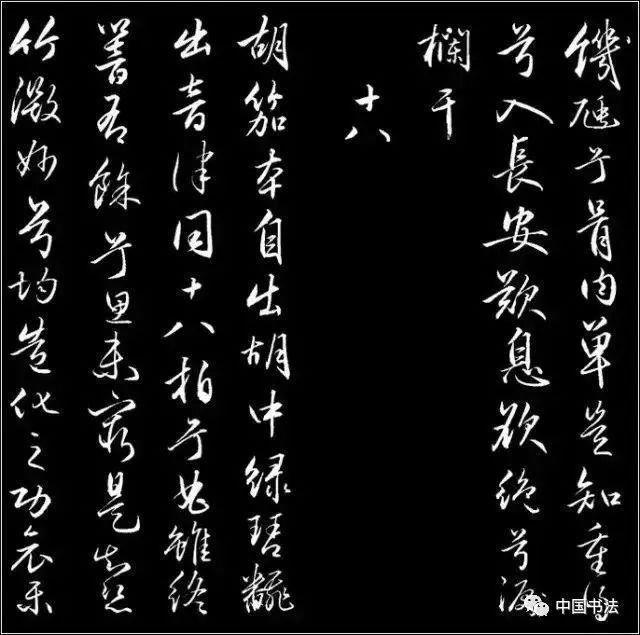 饑豗兮骨肉單豈知重得
兮入長安歎息欲絶兮淚
欄干
十八
胡笳本自出胡中緑琴翻
出音律同十八拍兮曲雖終
響有餘兮思未窮是知絲
竹微妙兮均造化之功哀樂
中国书法